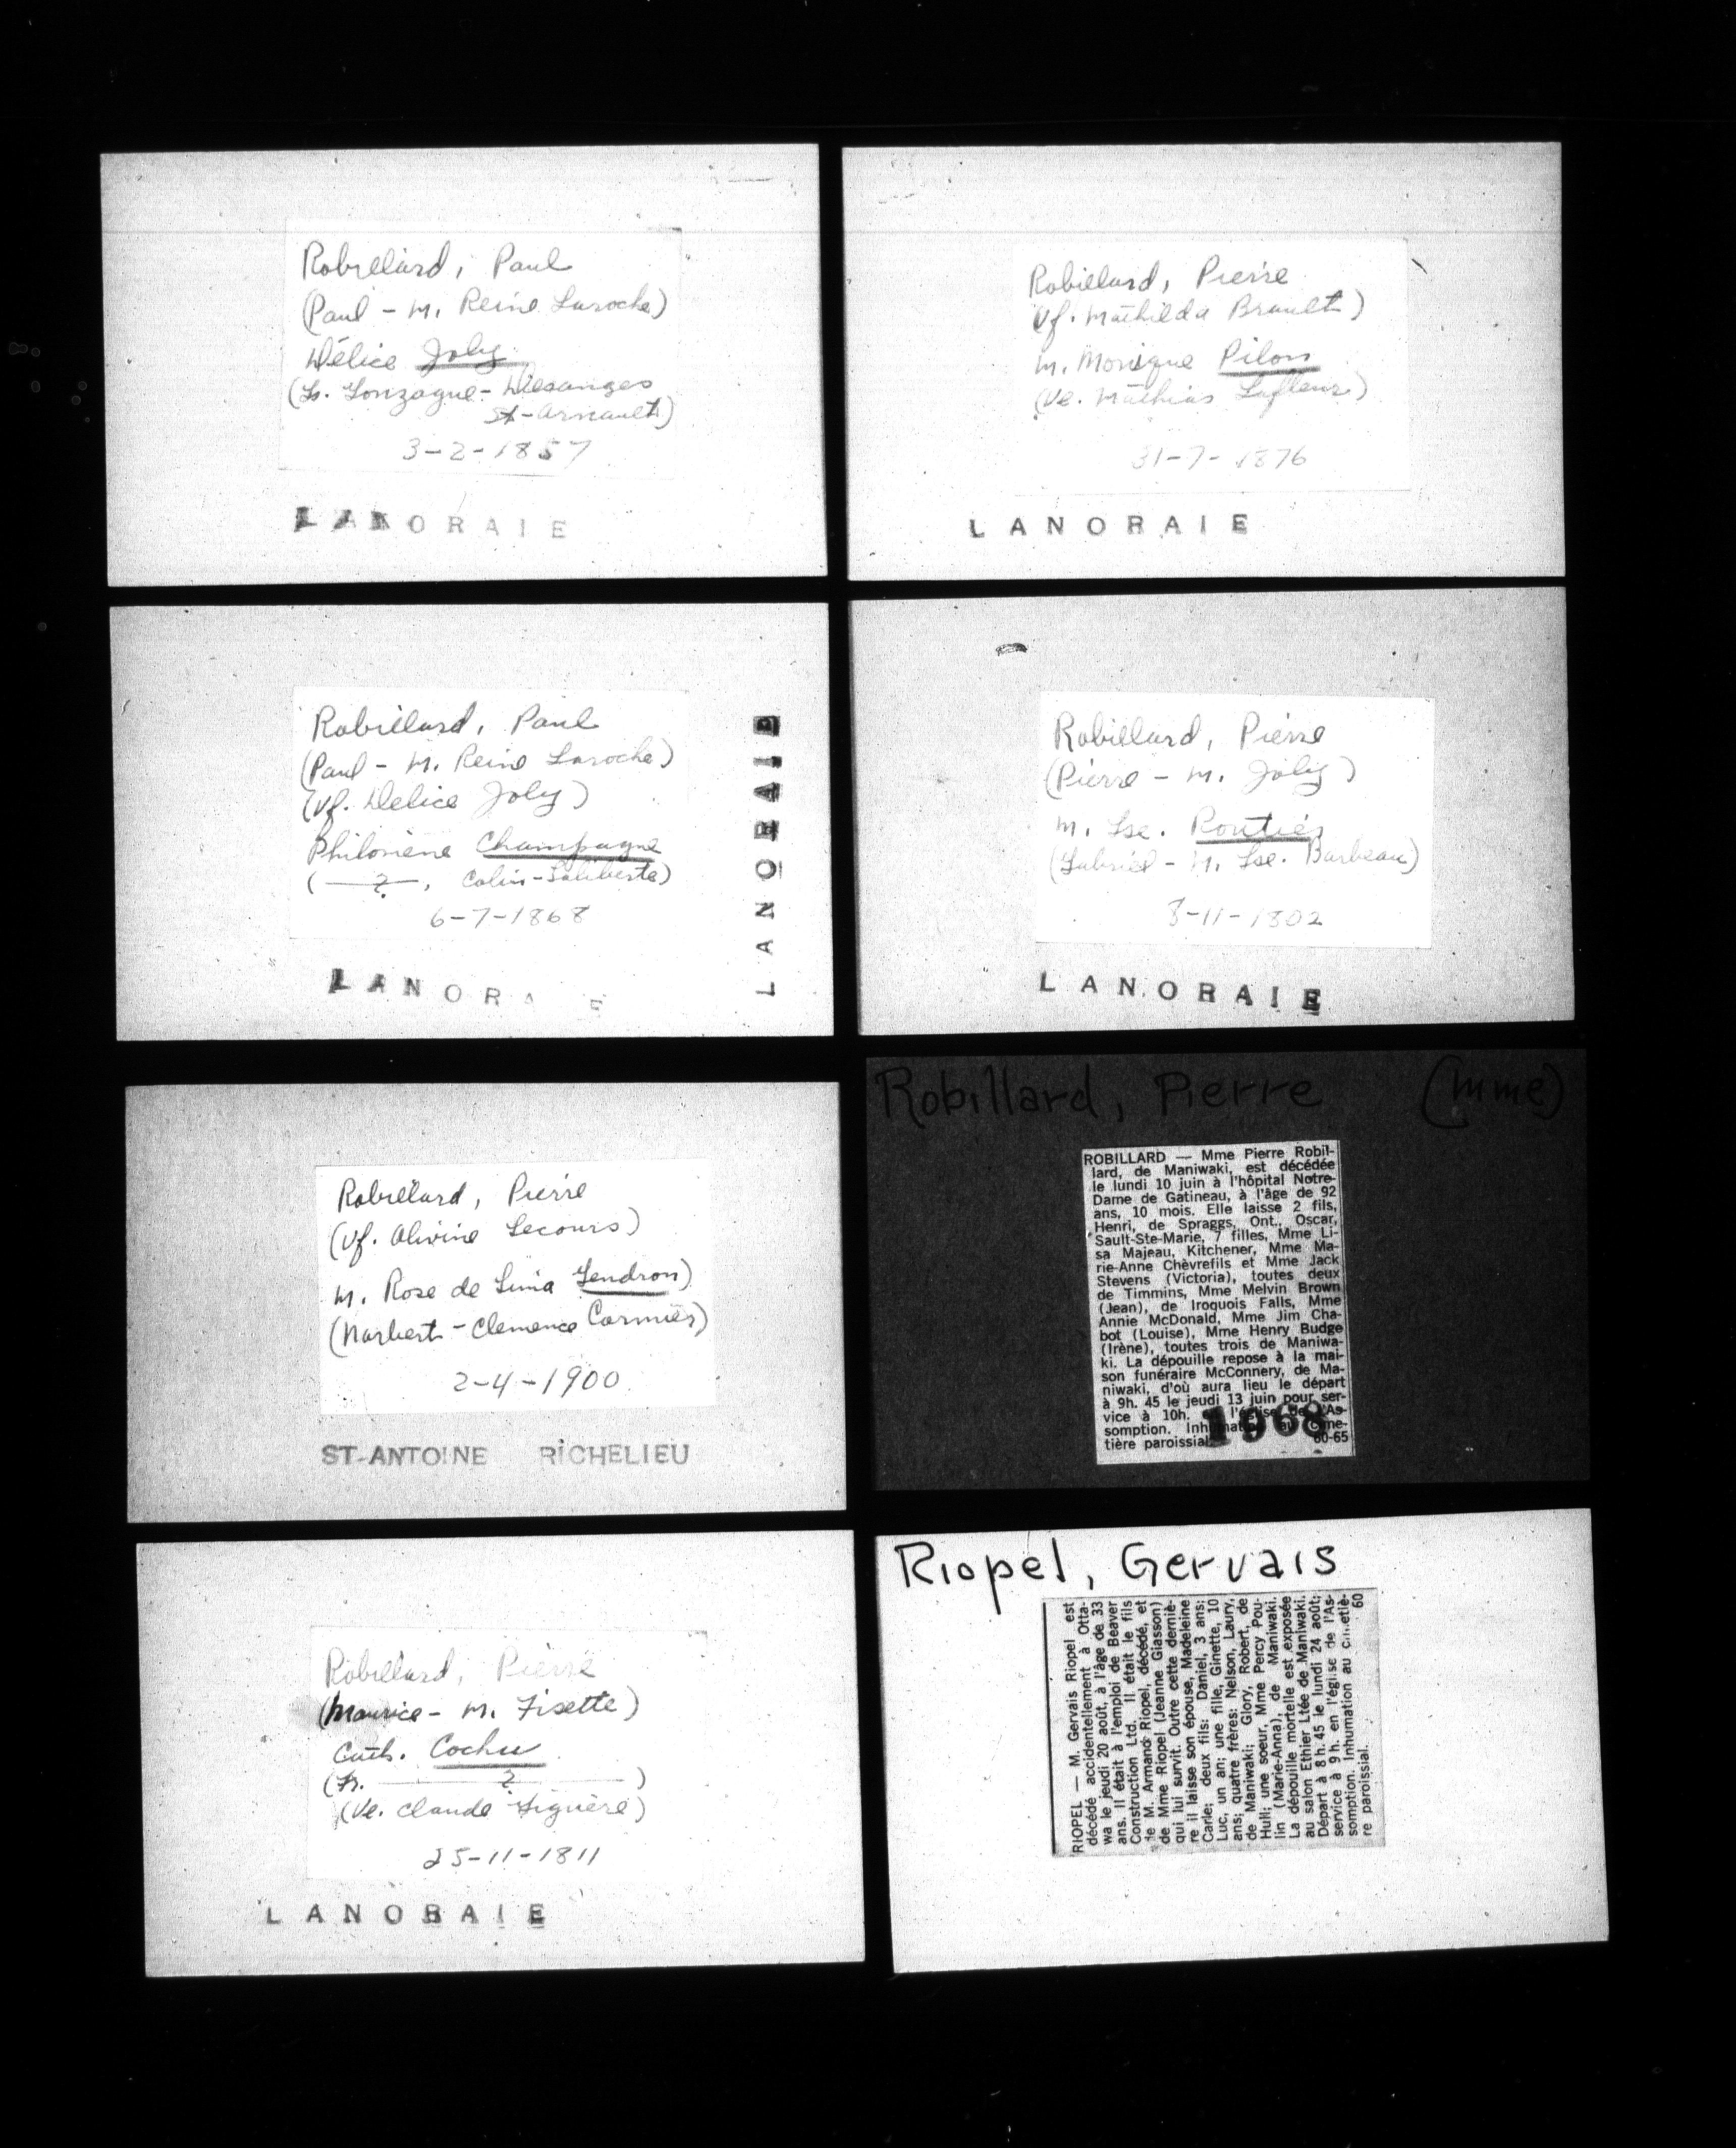 Robillard, Paul
(Paul - M. Reine Laroche)
Délice Joly
(Fr. Gonzague - Desanges
St-Arnault)
3-2-1857
LANORAIE
Robillard, Pierre
(Vf. Mathilda Brault)
M. Monique Pilon
(Ve. Mathias Lafleur)
31-7-1876
LANORAIE
Robillard, Paul
(Paul - M. Reine Laroche)
(Vf. Délice Joly)
Philomène Champagne
( — ? — , Colin-Laliberté)
6-7-1868
LANORAIE
LANORAIE
Robillard, Pierre
(Pierre - M. Joly)
M. Lse. Routier
(Gabriel - M. Lse. Barbeau)
8-11-1802
LANORAIE
Robillard, Pierre
(Vf. Olivine Lecours)
M. Rose de Lima Gendron)
(Norbert - Clemence Cormier)
2-4-1900
ST-ANTOINE RICHELIEU
Robillard, Pierre (Mme)
ROBILLARD — Mme Pierre Robil-
lard, de Maniwaki, est décédée
le lundi 10 juin à l'hôpital Notre-
Dame de Gatineau, à l'âge de 92
ans, 10 mois. Elle laisse 2 fils,
Henri, de Spraggs, Ont., Oscar,
Sault-Ste-Marie, 7 filles, Mme Li-
sa Majeau, Kitchener, Mme Ma-
rie-Anne Chèvrefils et Mme Jack
Stevens (Victoria), toutes deux
de Timmins, Mme Melvin Brown
(Jean), de Iroquois Falls, Mme
Annie McDonald, Mme Jim Cha-
bot (Louise), Mme Henry Budge
(Irène), toutes trois de Maniwa-
ki. La dépouille repose à la mai-
son funéraire McConnery, de Ma-
niwaki, d'où aura lieu le départ
à 9h. 45 le jeudi 13 juin pour ser-
vice à 10h. l'église de l'As-
somption. Inhumation au cime-
tière paroissial. 60-65
1968
Robillard, Pierre
(Maurice - M. Fisette)
Cath. Cochu
(Fr. — ? — )
(Ve. Claude Giguère)
25-11-1811
LANORAIE
Riopel, Gervais
RIOPEL — M. Gervais Riopel est
décédé accidentellement à Otta-
wa le jeudi 20 août, à l'âge de 33
ans. Il était à l'emploi de Beaver
Construction Ltd. Il était le fils
de M. Armand Riopel, décédé, et
de Mme Riopel (Jeanne Giasson)
qui lui survit. Outre cette derniè-
re il laisse son épouse, Madeleine
Carle; deux fils: Daniel, 3 ans;
Luc, un an; une fille, Ginette, 10
ans; quatre frères: Nelson, Laury,
de Maniwaki; Glory, Robert, de
Hull; une soeur, Mme Percy Pou-
lin (Marie-Anna), de Maniwaki.
La dépouille mortelle est exposée
au salon Ethier Ltée de Maniwaki.
Départ à 8 h. 45 le lundi 24 août;
service à 9 h. en l'église de l'As-
somption. Inhumation au cimetiè-
re paroissial. 60